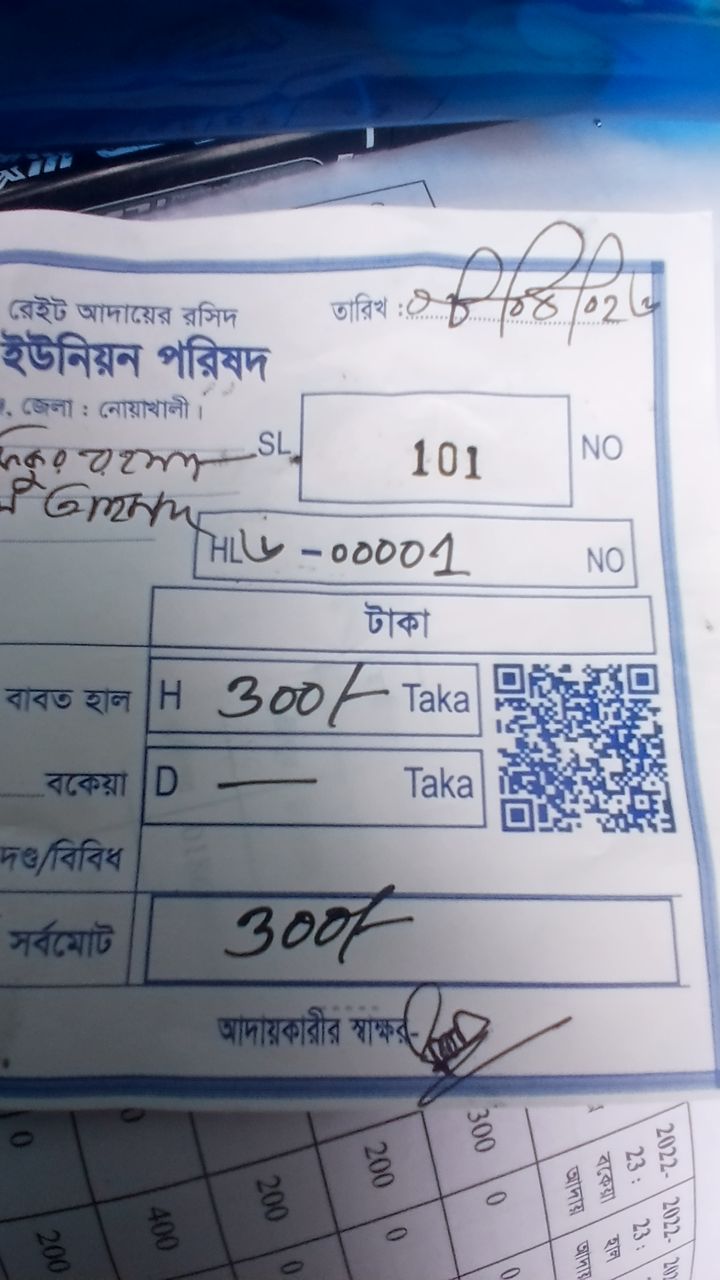 রেইট আদায়ের রসিদ
তারিখ :
ইউনিয়ন পরিষদ
জেলা : নোয়াখালী।
রহমান
SL. 101 NO
HL ৬ -00001 NO
টাকা
বাবত হাল H 300/- Taka
বকেয়া D — Taka
দণ্ড/বিবিধ
সর্বমোট 300/-
আদায়কারীর স্বাক্ষর-
2022-23 : বকেয়া আদায়
2022-23 : হাল
300 0
200 0
200 0
0 400
0 200